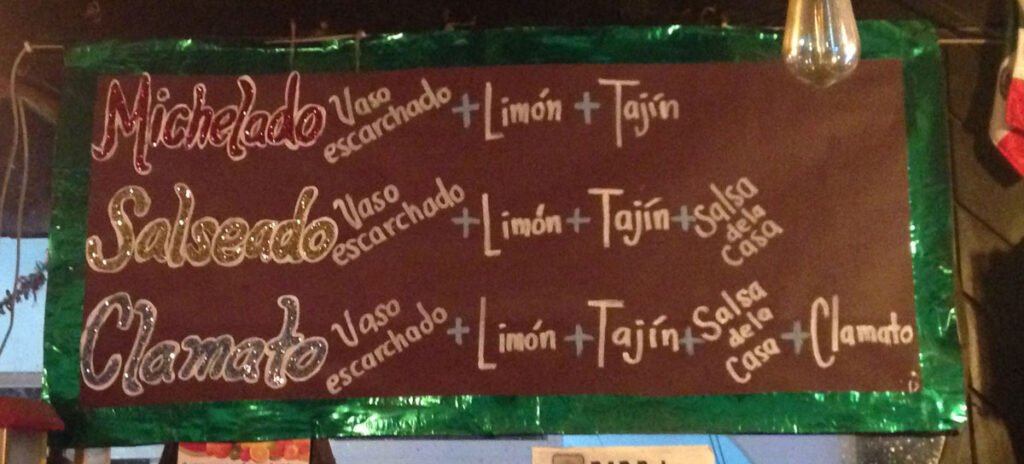 Michelado Vaso escarchado + Limón + Tajín
Salseado Vaso escarchado + Limón + Tajín + Salsa de la casa
Clamato Vaso escarchado + Limón + Tajín + Salsa de la Casa + Clamato